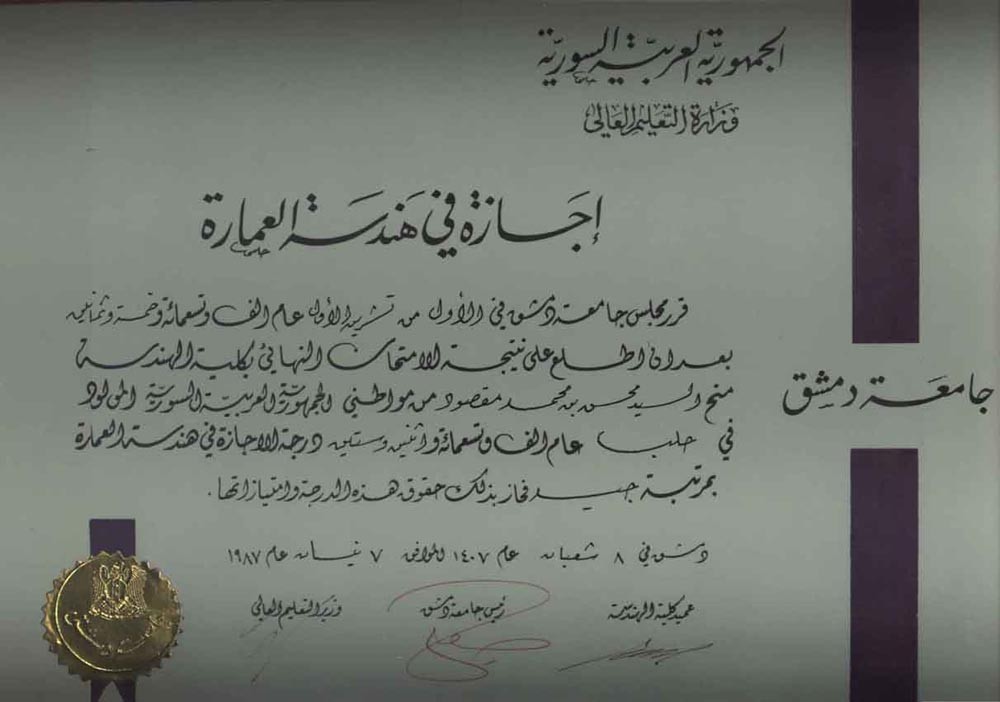 الجمهورية العربية السورية
وزارة التعليم العالي
إجازة في هندسة العمارة
جامعة دمشق
قرر مجلس جامعة دمشق في الأول من تشرين الأول عام الف وتسعمائة وخمسة وثمانين
بعد ان اطلع على نتيجة الامتحان النهائي بكلية الهندسة
منح السيد محسن بن محمد مقصود من مواطني الجمهورية العربية السورية المولود
في حلب عام الف وتسعمائة واثنين وستين درجة الاجازة في هندسة العمارة
بمرتبة جيد فحاز بذلك حقوق هذه الدرجة وامتيازاتها.
دمشق في ٨ شعبان عام ١٤٠٧ الموافق ٧ نيسان عام ١٩٨٧
عميد كلية الهندسة رئيس جامعة دمشق وزير التعليم العالي